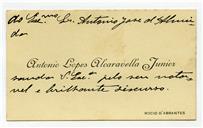 ao Exmo Sr. Dr. Antonio José d'Almeida
Antonio Lopes Alcaravella Junior
saúda S. Exa. pelo seu notavel e brilhante discurso.
ROCIO D'ABRANTES